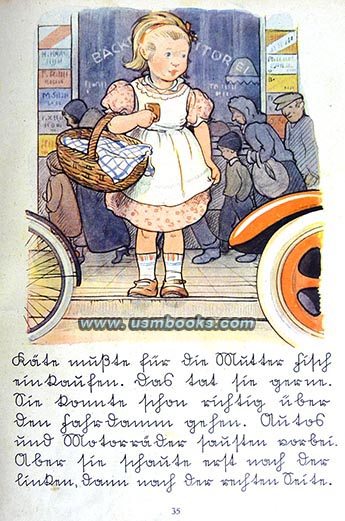 BÄCK ITOREI
www.usmbooks.com
Käte mußte für die Mutter Fisch
einkaufen. Das tat sie gerne.
Sie konnte schon richtig über
den Fahrdamm gehen. Autos
und Motorräder sausten vorbei.
Aber sie schaute erst nach der
linken, dann nach der rechten Seite.
35